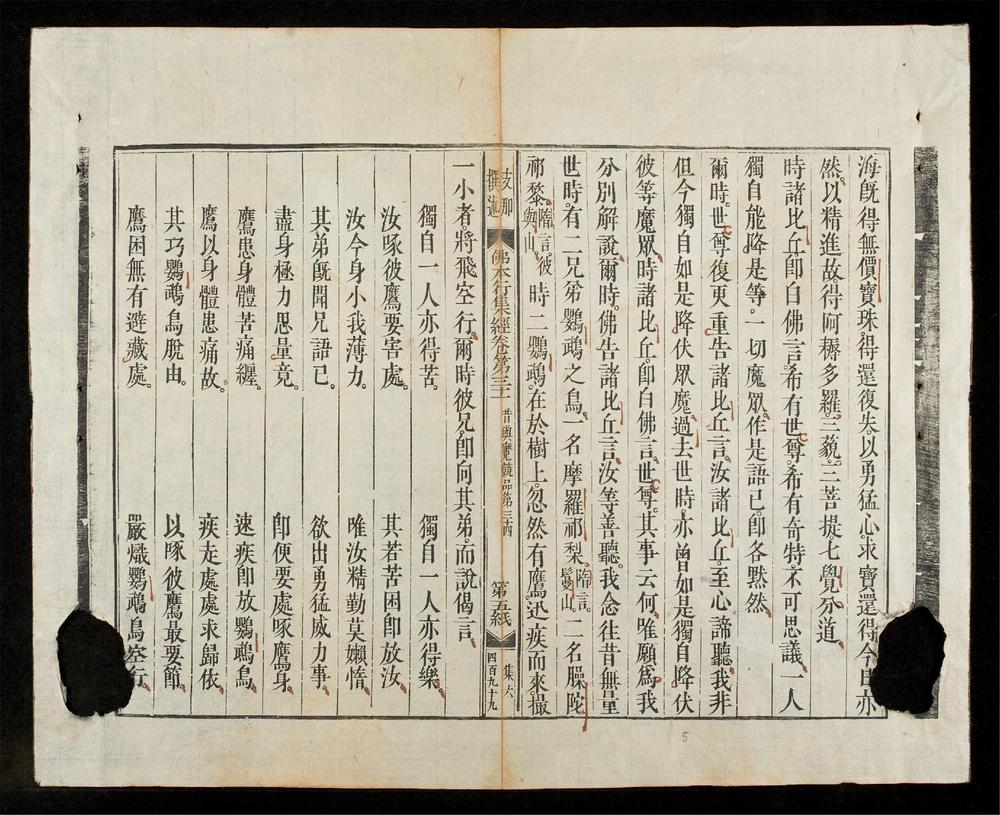 海既得無價寶珠得還復失以勇猛心求寶還得今日亦
然以精進故得阿耨多羅三藐三菩提七覺分道
時諸比丘即白佛言希有世尊希有奇特不可思議一人
獨自能降是等一切魔眾作是語已即各默然
爾時世尊復更重告諸比丘言汝諸比丘至心諦聽我非
但今獨自如是降伏眾魔過去世時亦曾如是獨自降伏
彼等魔眾時諸比丘即白佛言世尊其事云何唯願為我
分別解說爾時佛告諸比丘言汝等善聽我念往昔無量
世時有二兄弟鸚鵡之鳥一名摩羅祁梨隋言鬘山二名臊陀
祁黎隋言彼與山時二鸚鵡在於樹上忽然有鷹迅疾而來撮
支那撰述 佛本行集經卷第三十一 昔與魔競品第三十四 第五紙 集六 四百九十九
一小者將飛空行爾時彼兄即向其弟而說偈言
獨自一人亦得苦 獨自一人亦得樂
汝啄彼鷹要害處 其若苦困即放汝
汝今身小我薄力 唯汝精勤莫嬾惰
其弟既聞兄語已 欲出勇猛威力事
盡身極力思量竟 即便要處啄鷹身
鷹患身體苦痛纏 速疾即放鸚鵡鳥
鷹以身體患痛故 疾走處處求歸依
其巧鸚鵡鳥脫由 以啄彼鷹最要節
鷹困無有避藏處 嚴熾鸚鵡鳥空行
5